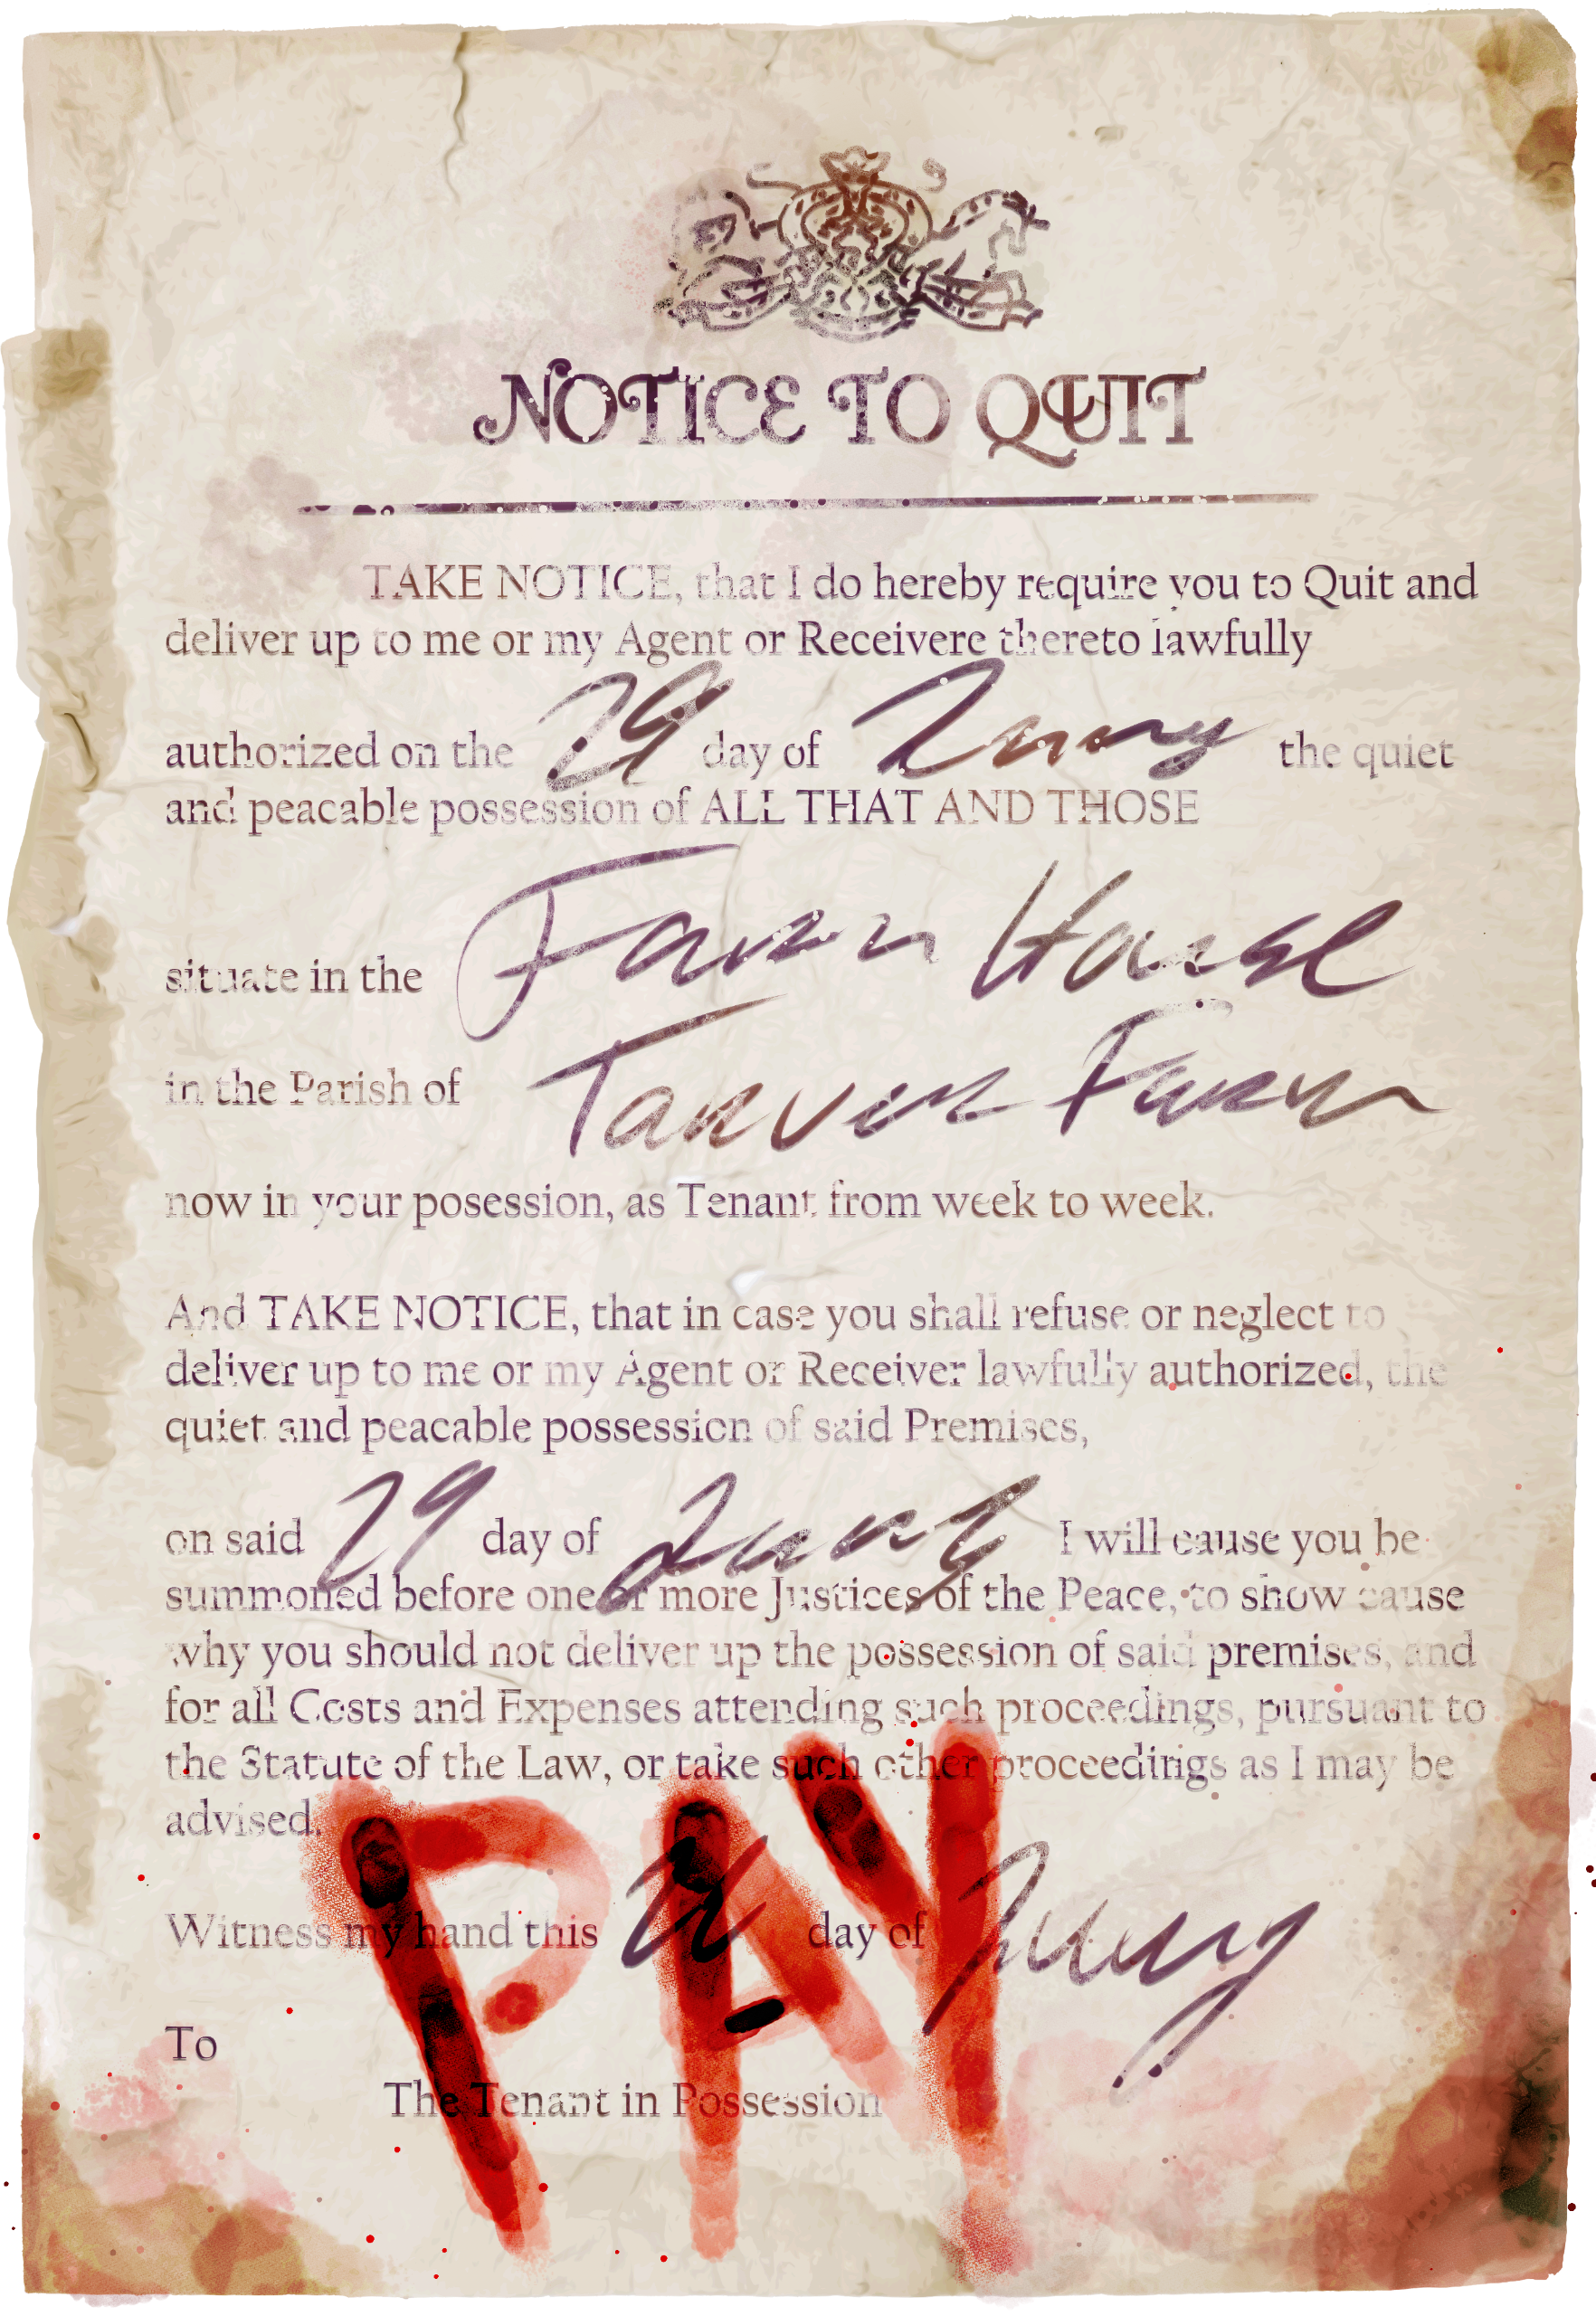 NOTICE TO QUIT
TAKE NOTICE, that I do hereby require you to Quit and
deliver up to me or my Agent or Receivere thereto lawfully
authorized on the 29 day of the quiet
and peacable possession of ALL THAT AND THOSE
situate in the Farm House
in the Parish of Farm
now in your posession, as Tenant from week to week.
And TAKE NOTICE, that in case you shall refuse or neglect to
deliver up to me or my Agent or Receiver lawfully authorized, the
quiet and peacable possession of said Premises,
on said 29 day of I will cause you be
summoned before one or more Justices of the Peace, to show cause
why you should not deliver up the possession of said premises, and
for all Costs and Expenses attending such proceedings, pursuant to
the Statute of the Law, or take such other proceedings as I may be
advised.
PAY
Witness my hand this day of
To
The Tenant in Possession